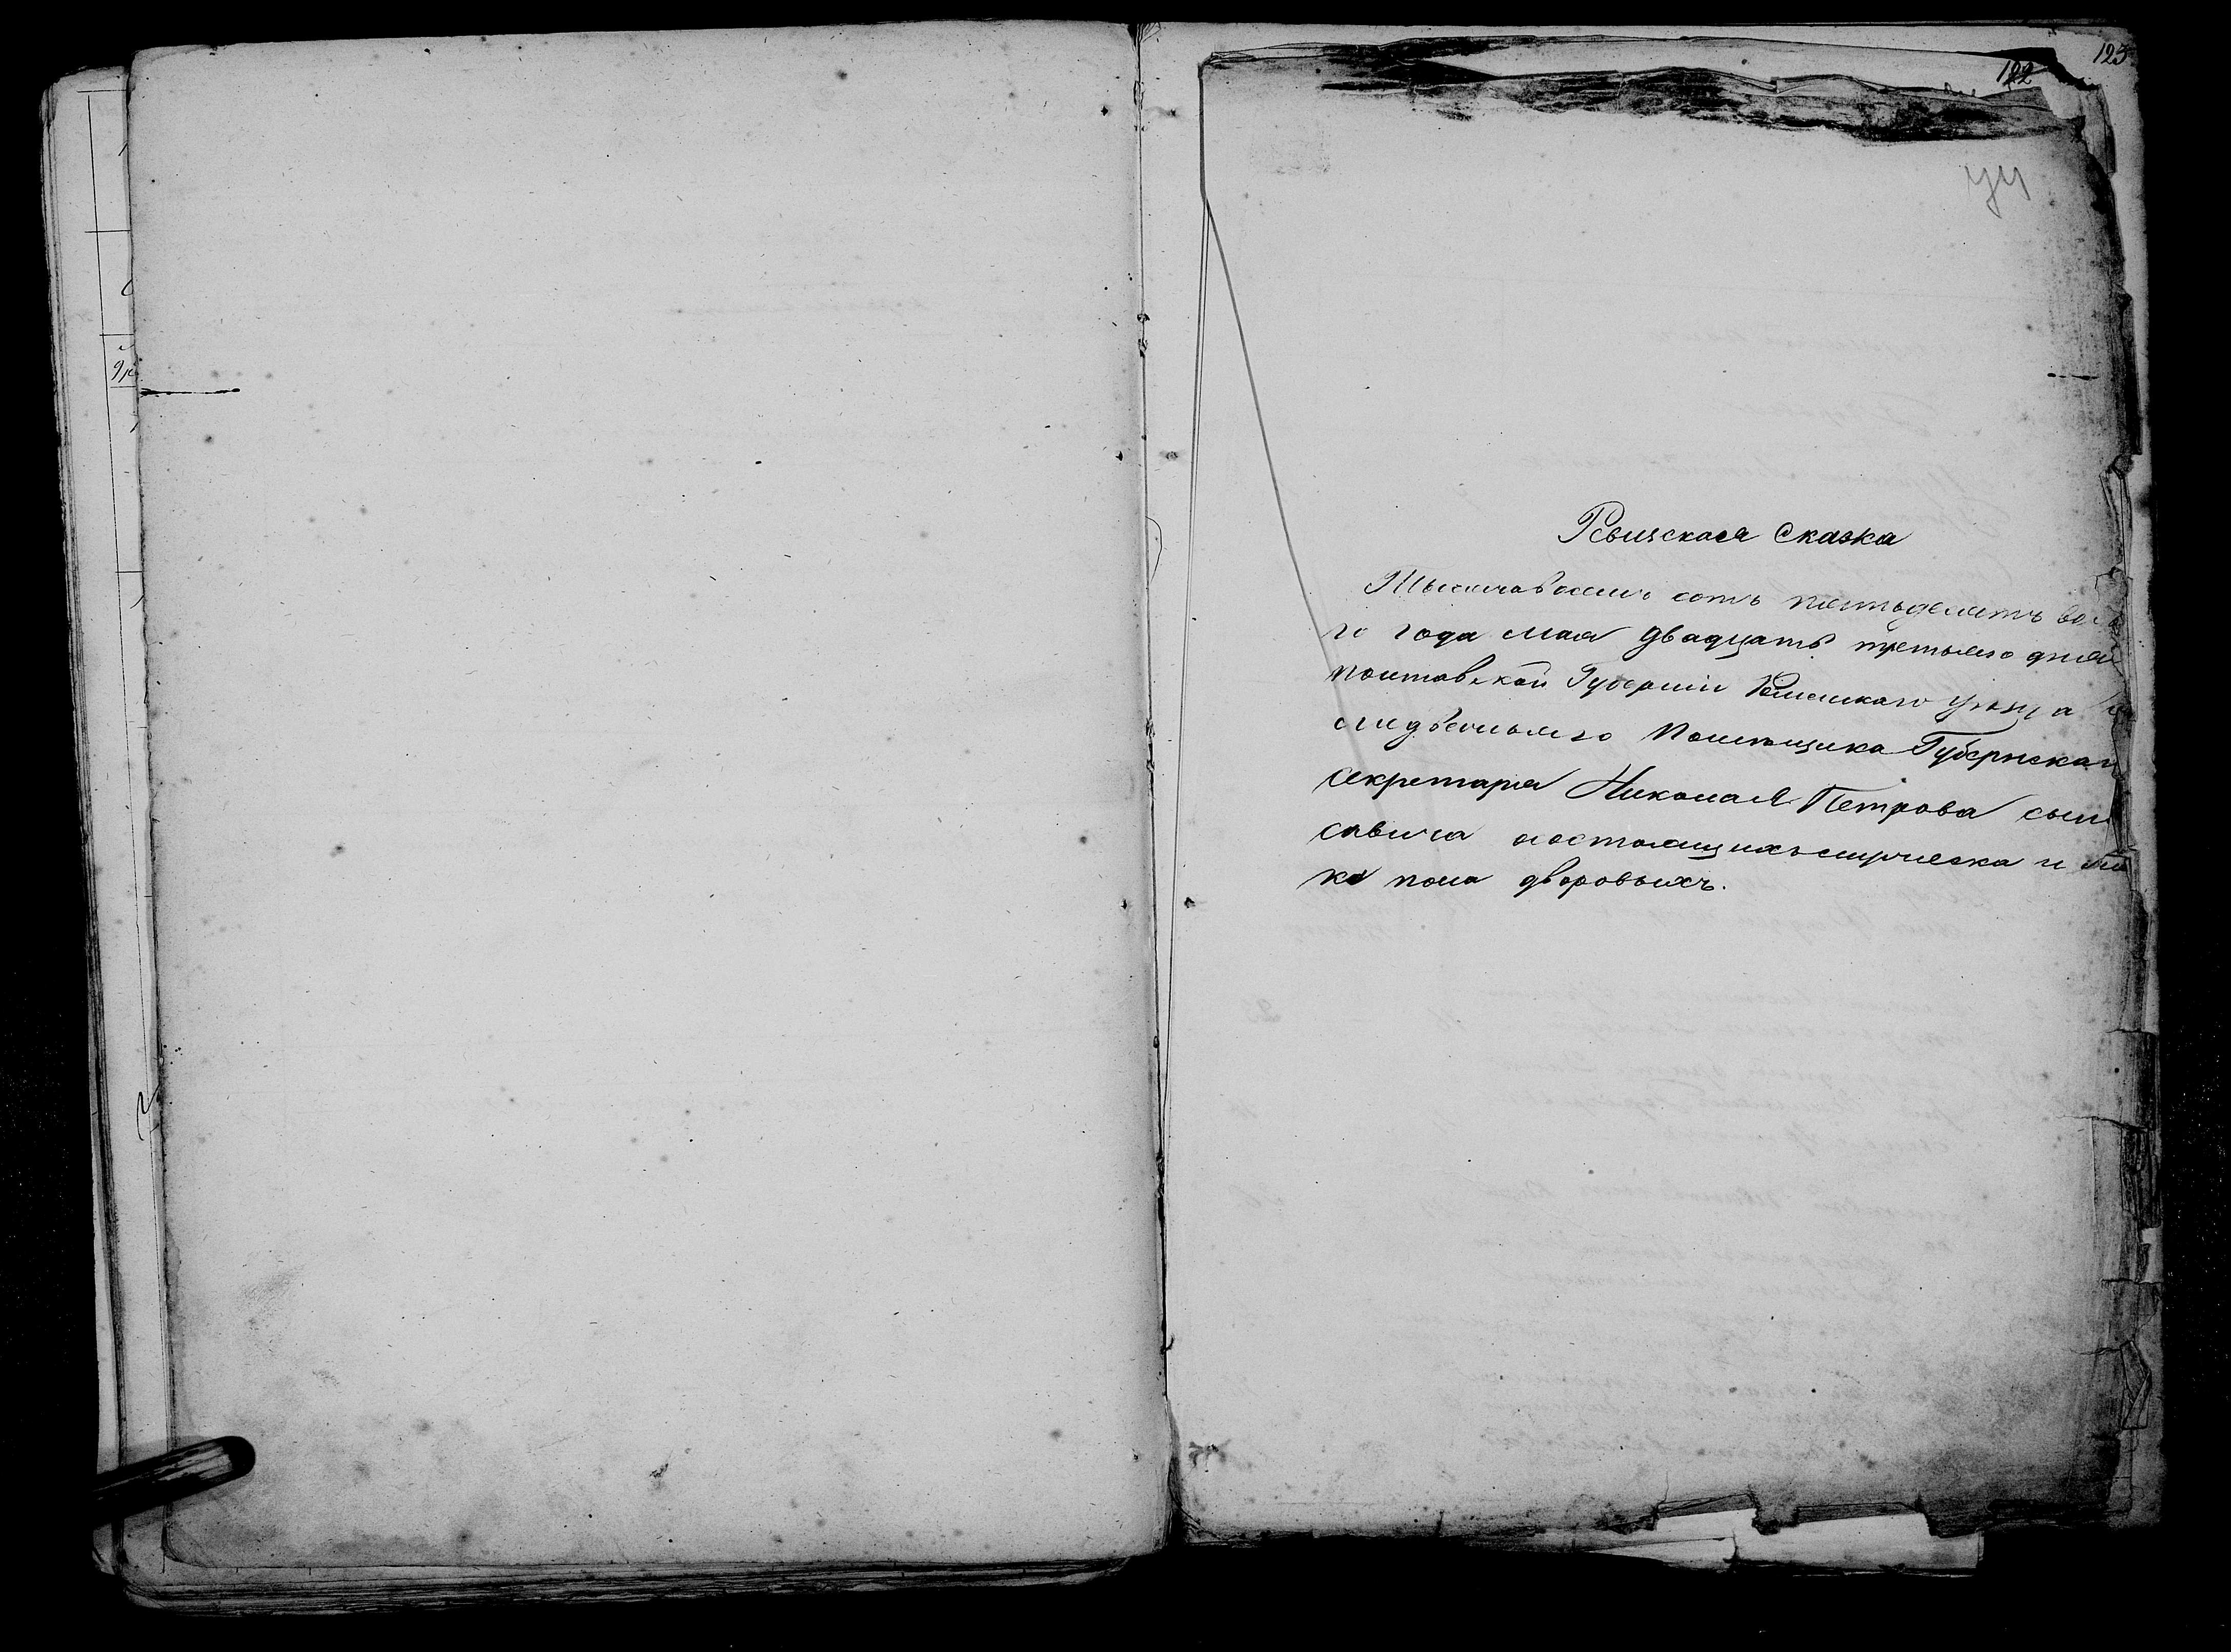 123
122
Ревизская Сказка
Тысяча восемь сотъ пятьдесятъ вос
го года мая двадцать третьяго дня
Полтавской Губерніи Роменскаго уѣзда
Помѣщика Губернскаго
Секретаря Николая Петрова сына
Савича состоящихъ мужеска и
ка пола дворовыхъ.